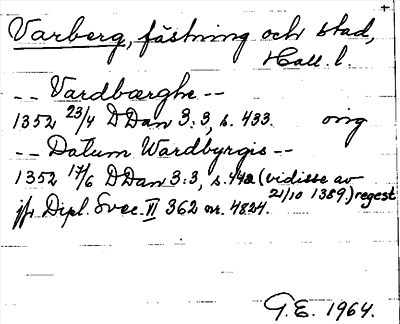 +
Varberg, fästning och stad,
Hall. l.
-- Vardbærghe --
1352 23/4 DDan 3:3, s. 433. orig
-- Datum Wardbyrgis --
1352 17/6 DDan 3:3, s. 442 (vidisse av
21/10 1389.) regest
jfr Dipl. Svec. VI 362 nr. 4824.
G.E. 1964.